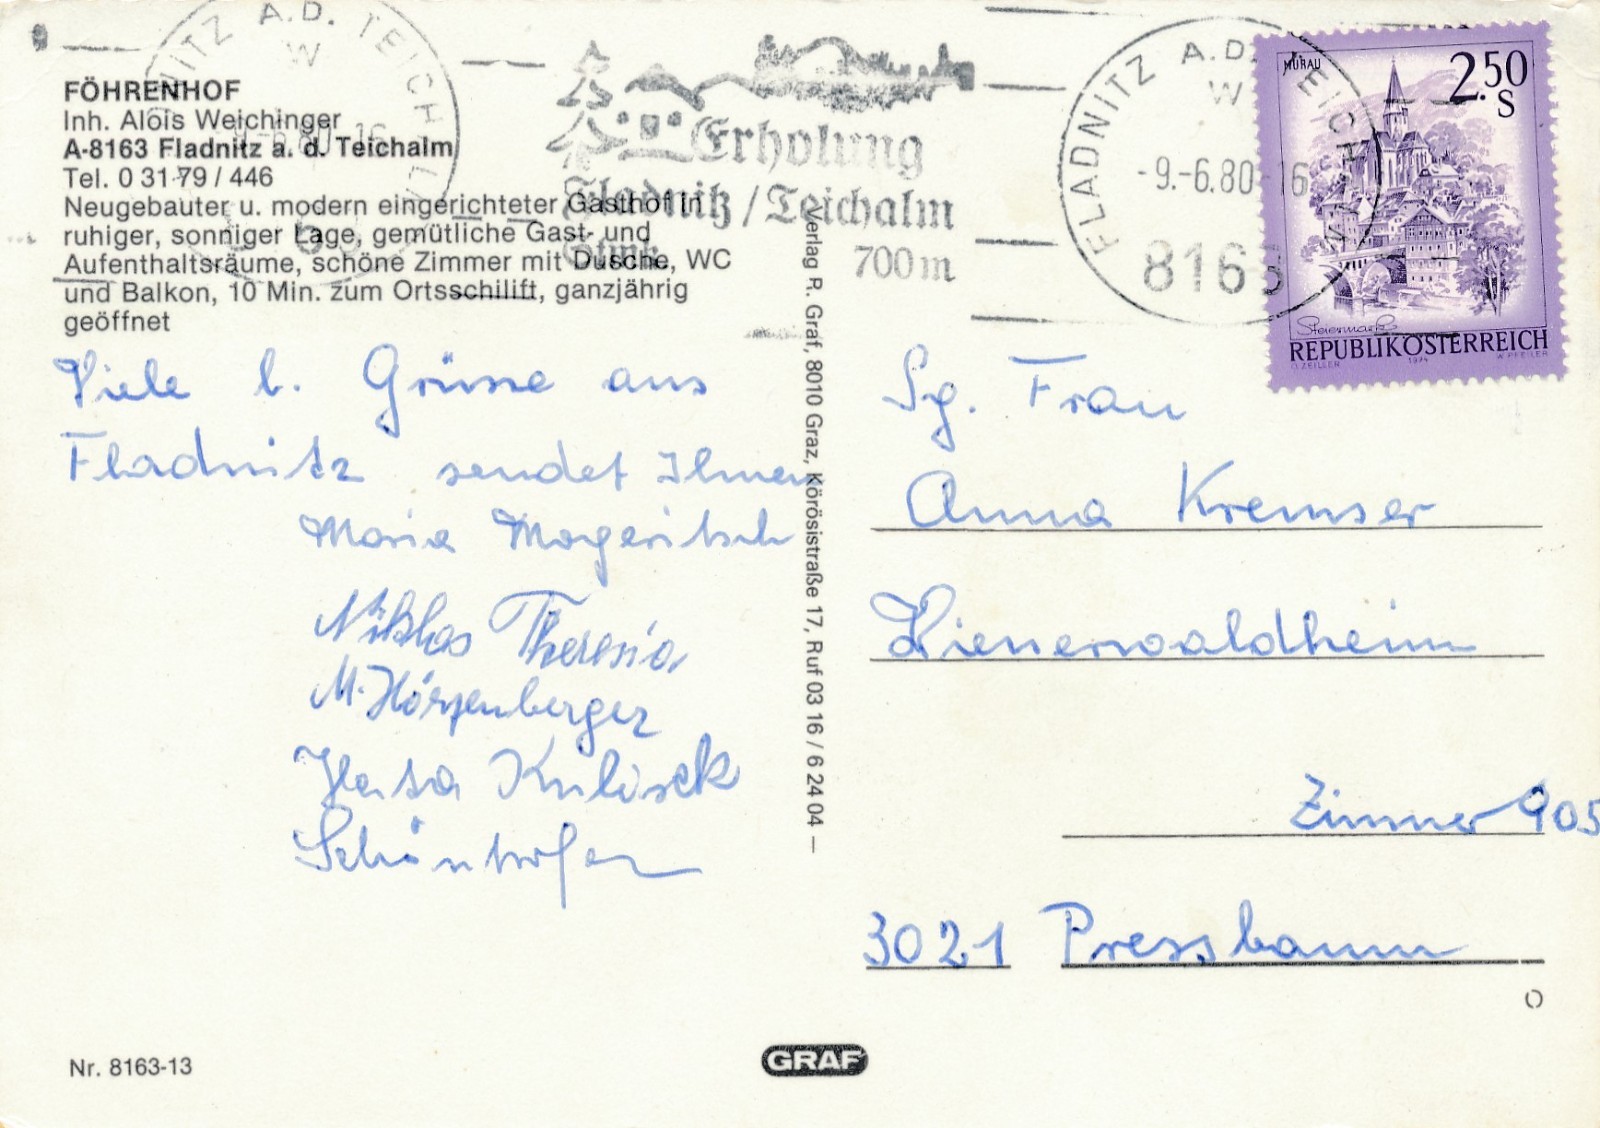 FÖHRENHOF
Inh. Alois Weichinger
A-8163 Fladnitz a. d. Teichalm
Tel. 0 31 79 / 446
Neugebauter u. modern eingerichteter Gasthof in
ruhiger, sonniger Lage, gemütliche Gast- und
Aufenthaltsräume, schöne Zimmer mit Dusche, WC
und Balkon, 10 Min. zum Ortsschilift, ganzjährig
geöffnet
Viele l. Grüsse aus
Fladnitz sendet Ihnen
Maria Margeritsch
Niklas Theresia
M. Hörzenberger
Herta Kulisek
Schönhofer
Nr. 8163-13
Verlag R. Graf, 8010 Graz, Körösistraße 17, Ruf 03 16 / 6 24 04 —
GRAF
Erholung
Fladnitz / Teichalm
Stmk. 700 m
FLADNITZ A.D. TEICHALM
W
-9.-6.80-16
8163
MURAU
2.50
S
Steiermark
REPUBLIK ÖSTERREICH
O. ZEILLER 1974 W. PFEILER
Sg. Frau
Anna Kremser
Wienerwaldheim
Zimmer 905
3021 Pressbaum